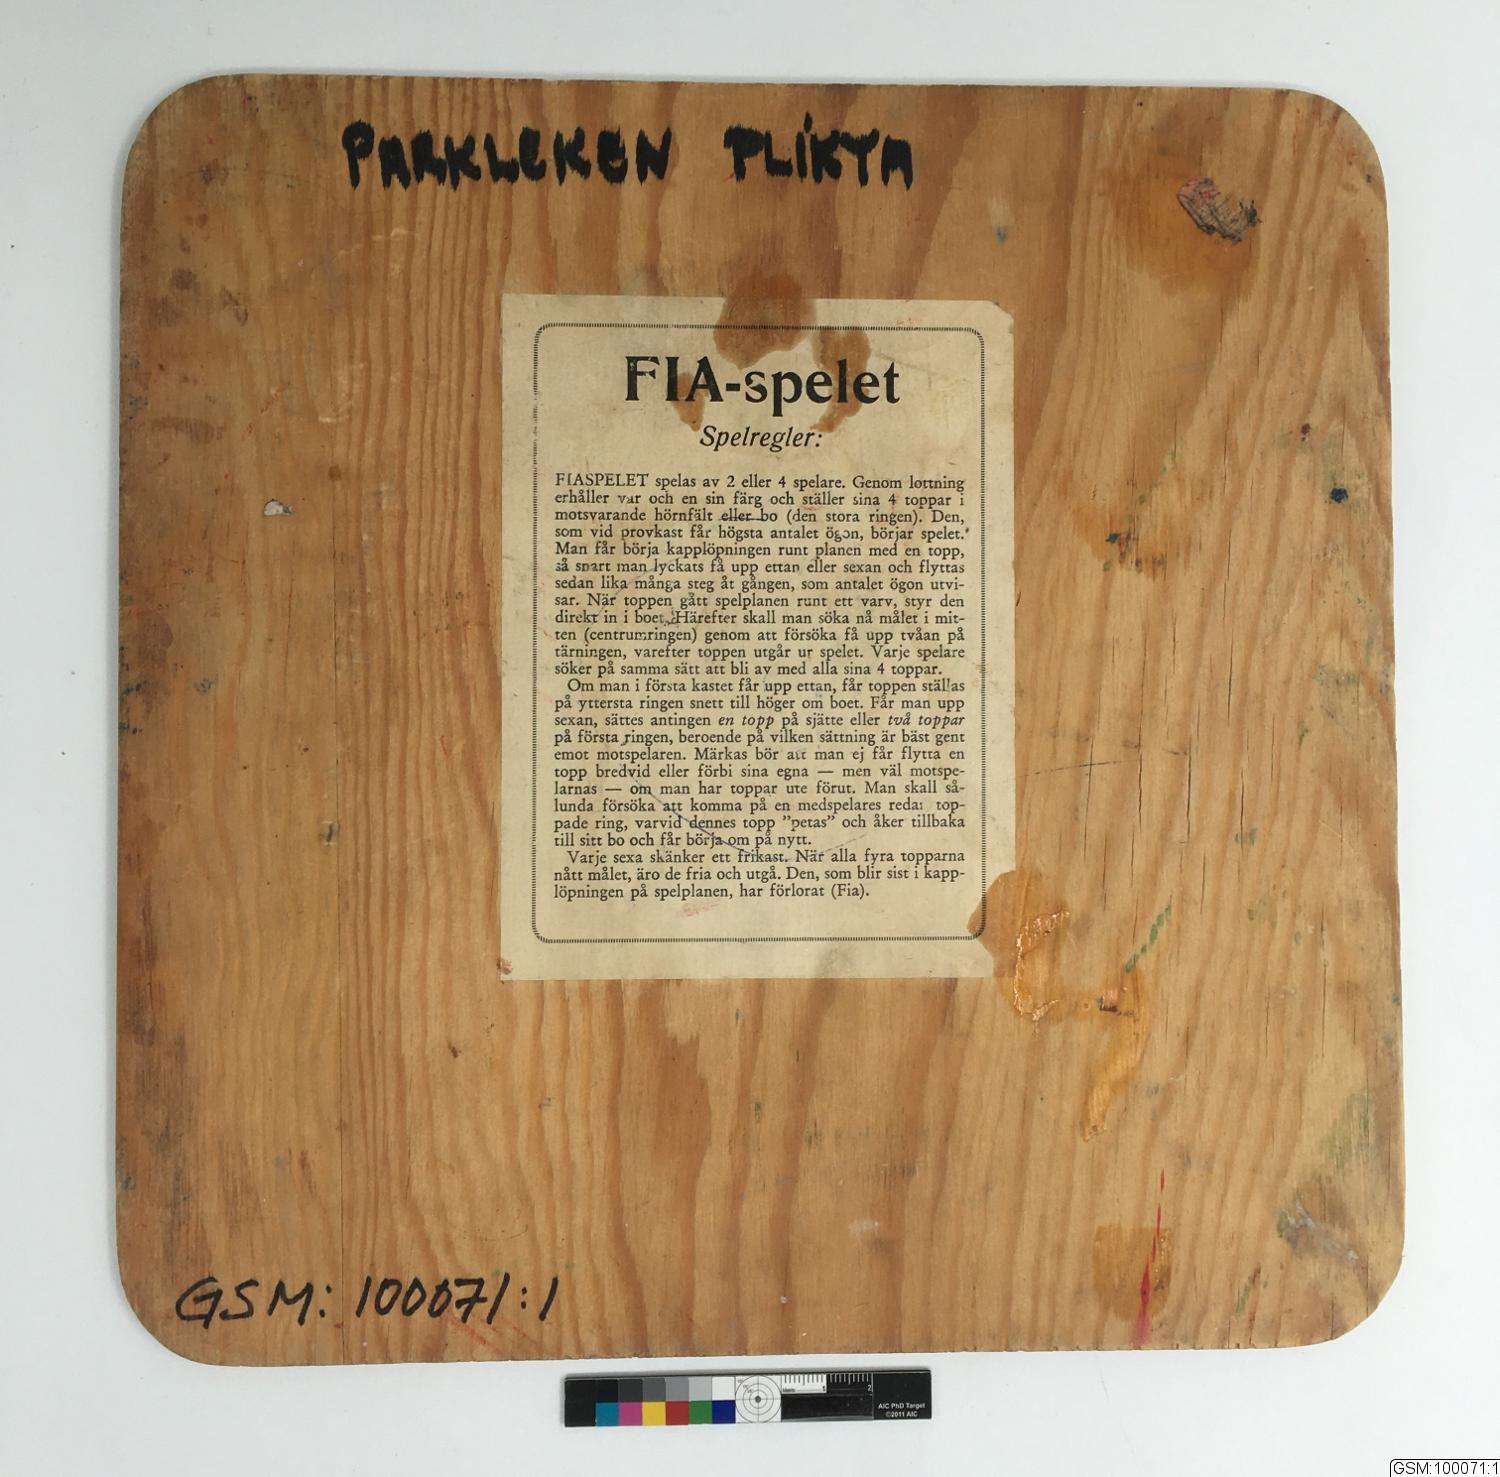 PARKLEKEN PLIKTA
FIA-spelet
Spelregler:
FIASPELET spelas av 2 eller 4 spelare. Genom lottning
erhåller var och en sin färg och ställer sina 4 toppar i
motsvarande hörnfält eller bo (den stora ringen). Den,
som vid provkast får högsta antalet ögon, börjar spelet.
Man får börja kapplöpningen runt planen med en topp,
så snart man lyckats få upp ettan eller sexan och flyttas
sedan lika många steg åt gången, som antalet ögon utvi-
sar. När toppen gått spelplanen runt ett varv, styr den
direkt in i boet. Härefter skall man söka nå målet i mit-
ten (centrumringen) genom att försöka få upp tvåan på
tärningen, varefter toppen utgår ur spelet. Varje spelare
söker på samma sätt att bli av med alla sina 4 toppar.
Om man i första kastet får upp ettan, får toppen ställas
på yttersta ringen snett till höger om boet. Får man upp
sexan, sättes antingen en topp på sjätte eller två toppar
på första ringen, beroende på vilken sättning är bäst gent
emot motspelaren. Märkas bör att man ej får flytta en
topp bredvid eller förbi sina egna — men väl motspe-
larnas — om man har toppar ute förut. Man skall så-
lunda försöka att komma på en medspelares redan top-
pade ring, varvid dennes topp ”petas” och åker tillbaka
till sitt bo och får börja om på nytt.
Varje sexa skänker ett frikast. När alla fyra topparna
nått målet, äro de fria och utgå. Den, som blir sist i kapp-
löpningen på spelplanen, har förlorat (Fia).
GSM: 100071:1
1 2
AIC PhD Target
©2011 AIC
GSM:100071:1